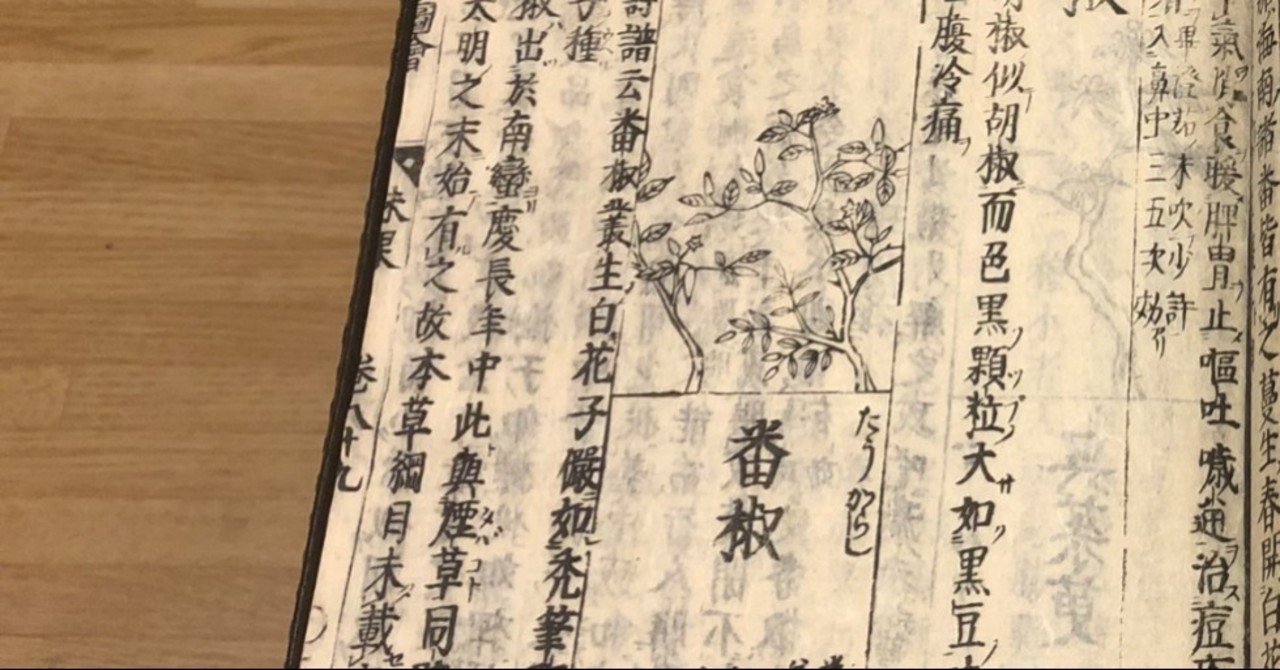 海南諸番皆有之蔓生春開白
氣宿食暖脾胃止嘔吐噦逆治痘
末吹少許
入鼻中三五次効リ
椒似胡椒而色黒顆粒大如黒豆
腹冷痛
たうがらし
番椒
詩譜云番椒叢生白花子儼如禿筆
子種
椒出於南蠻慶長年中此與煙草同
大明之末始有之故本草綱目未載
圖會
味果
巻八十九